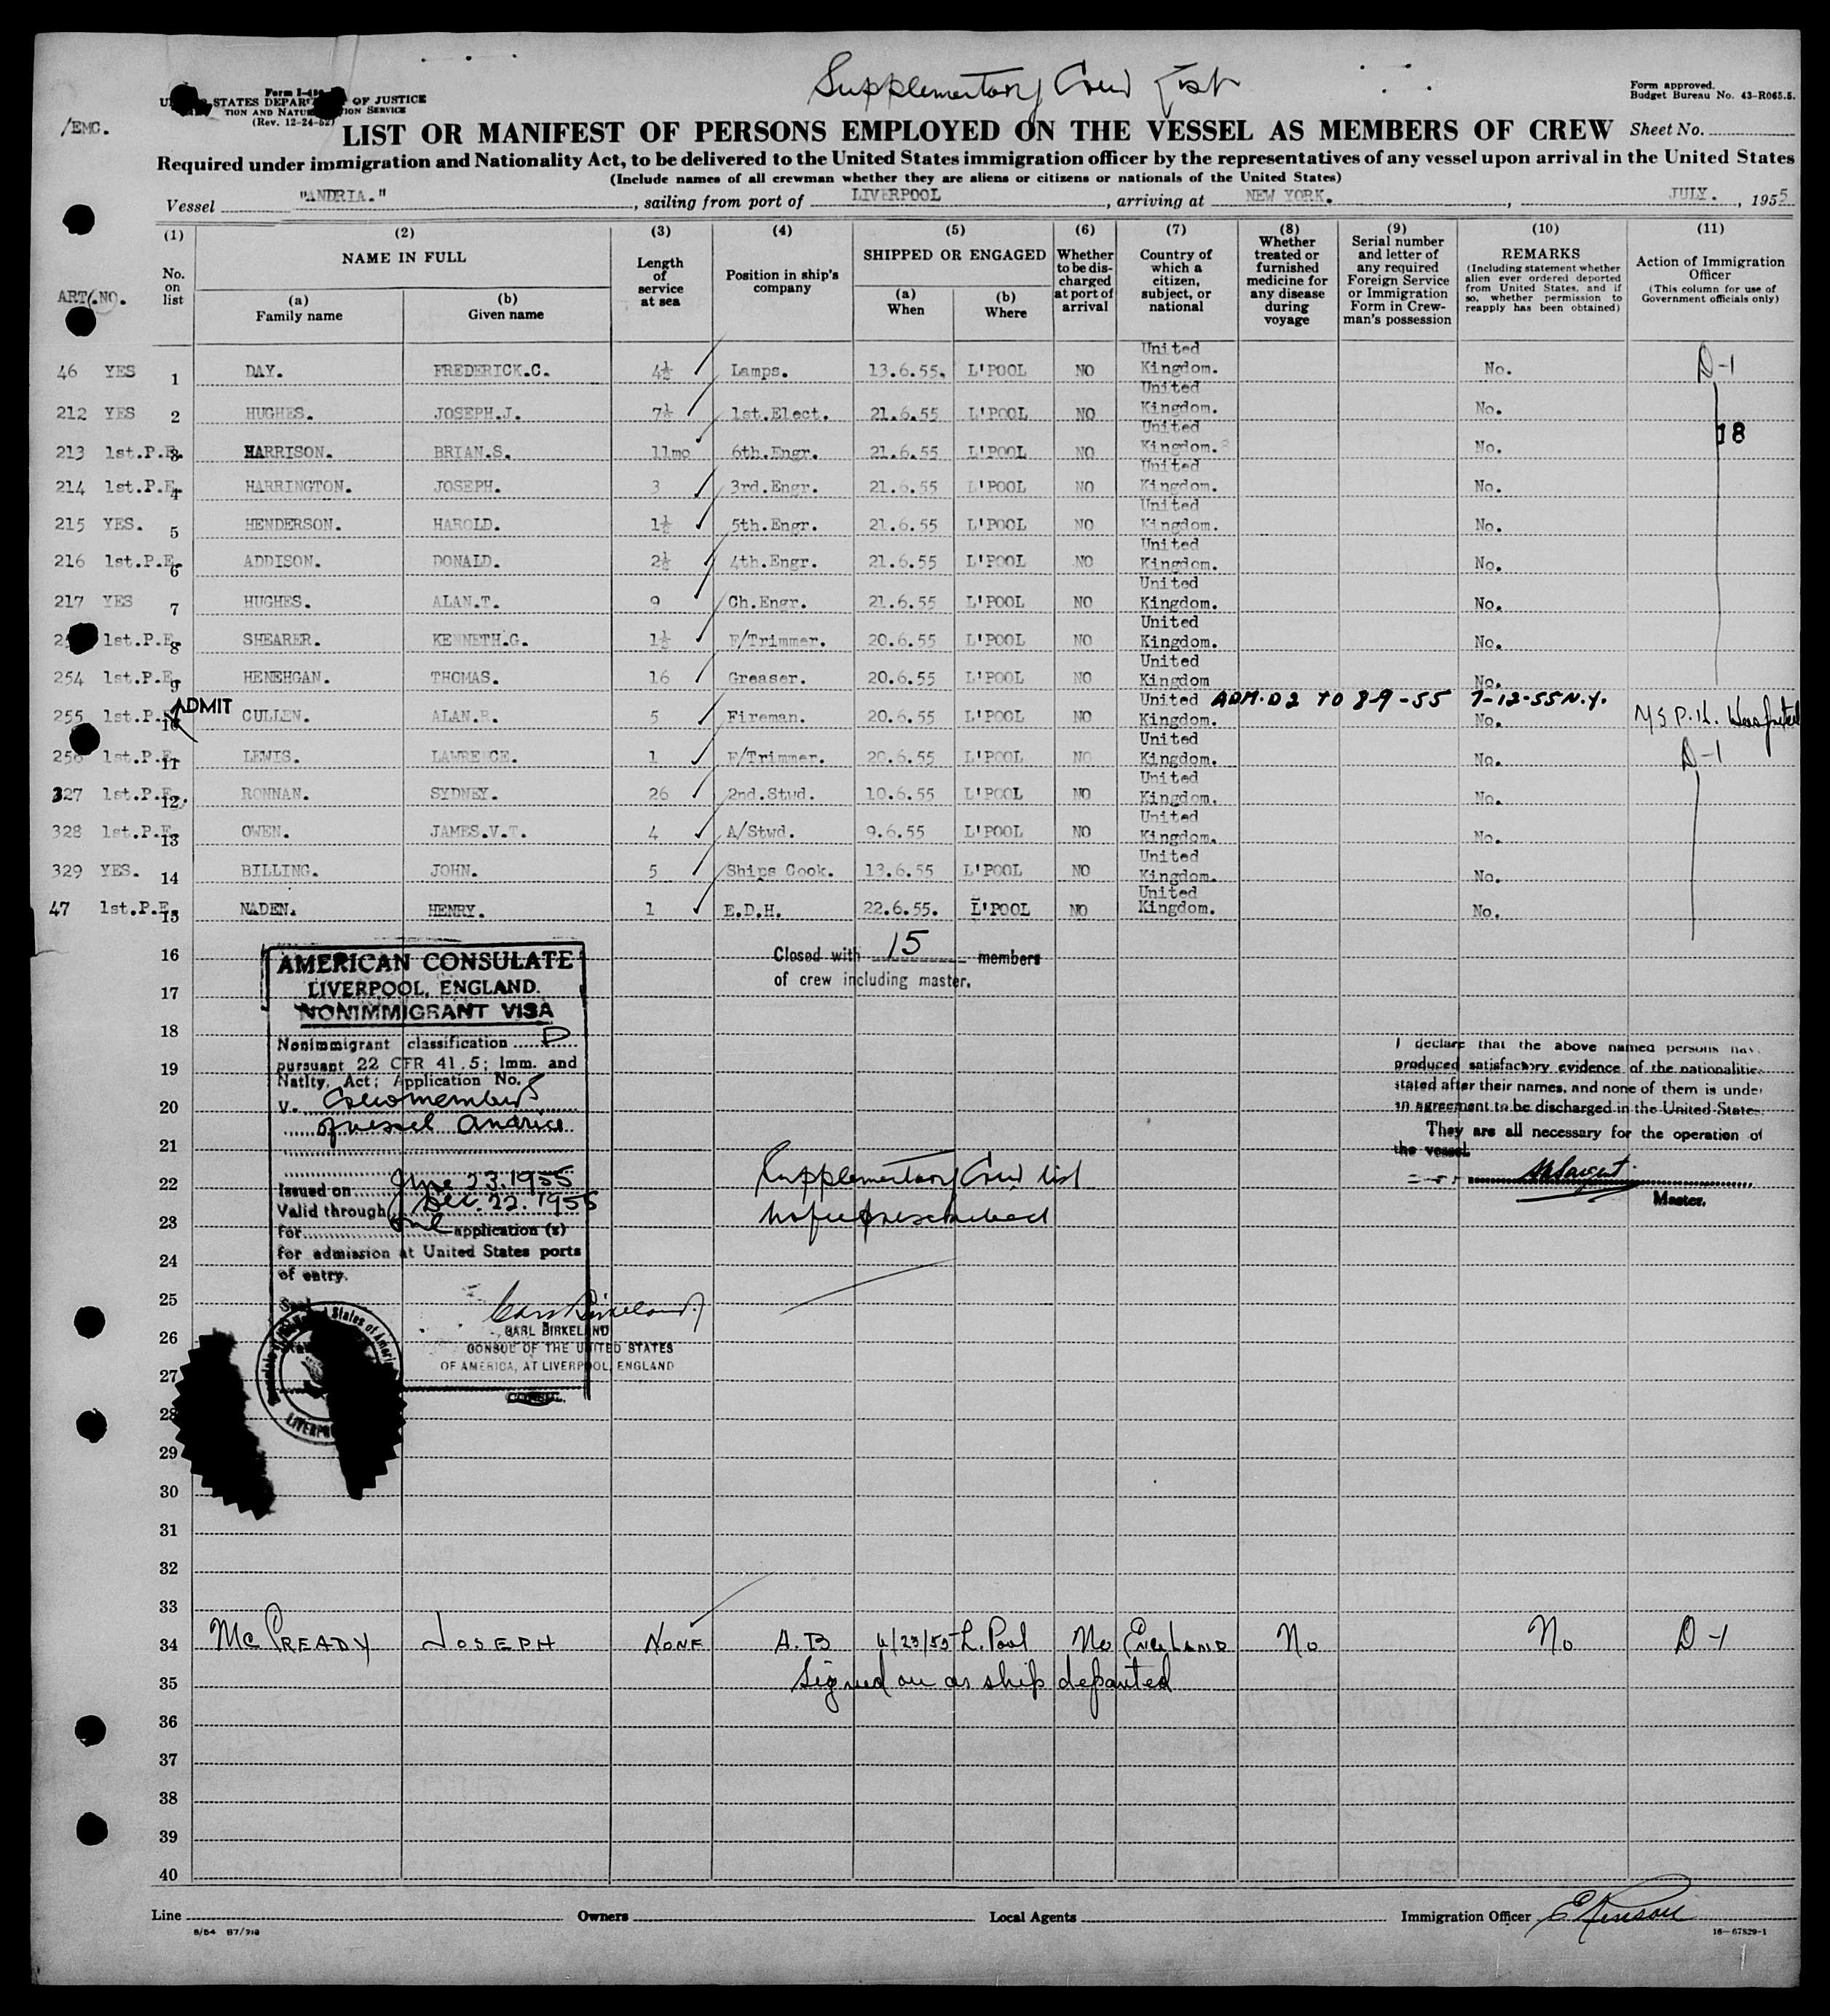 Supplementary Crew List
Form I-4
STATES DEPAR OF JUSTICE
TION AND NATU ION SERVICE
(Rev. 12-24-52)
Form approved.
Budget Bureau No. 43-R065.5.
/EMC.
LIST OR MANIFEST OF PERSONS EMPLOYED ON THE VESSEL AS MEMBERS OF CREW Sheet No.
Required under immigration and Nationality Act, to be delivered to the United States immigration officer by the representatives of any vessel upon arrival in the United States
(Include names of all crewman whether they are aliens or citizens or nationals of the United States)
Vessel "ANDRIA." , sailing from port of LIVERPOOL , arriving at NEW YORK. , JULY. , 1955
ART.NO.
(1) No. on list
(2) NAME IN FULL
(a) Family name
(b) Given name
(3) Length of service at sea
(4) Position in ship's company
(5) SHIPPED OR ENGAGED
(a) When
(b) Where
(6) Whether to be discharged at port of arrival
(7) Country of which a citizen, subject, or national
(8) Whether treated or furnished medicine for any disease during voyage
(9) Serial number and letter of any required Foreign Service or Immigration Form in Crewman's possession
(10) REMARKS
(Including statement whether alien ever ordered deported from United States, and if so, whether permission to reapply has been obtained)
(11) Action of Immigration Officer
(This column for use of Government officials only)
46 YES 1 DAY. FREDERICK.C. 4½ Lamps. 13.6.55. L'POOL NO United Kingdom. No. D-1
212 YES 2 HUGHES. JOSEPH.J. 7½ 1st.Elect. 21.6.55 L'POOL NO United Kingdom. No.
18
213 1st.P.E. 3 HARRISON. BRIAN.S. 11mo 6th.Engr. 21.6.55 L'POOL NO United Kingdom. No.
214 1st.P.E. 4 HARRINGTON. JOSEPH. 3 3rd.Engr. 21.6.55 L'POOL NO United Kingdom. No.
215 YES. 5 HENDERSON. HAROLD. 1½ 5th.Engr. 21.6.55 L'POOL NO United Kingdom. No.
216 1st.P.E. 6 ADDISON. DONALD. 2½ 4th.Engr. 21.6.55 L'POOL NO United Kingdom. No.
217 YES 7 HUGHES. ALAN.T. 9 Ch.Engr. 21.6.55 L'POOL NO United Kingdom. No.
1st.P.E. 8 SHEARER. KENNETH.G. 1½ F/Trimmer. 20.6.55 L'POOL NO United Kingdom. No.
254 1st.P.E. 9 HENEHGAN. THOMAS. 16 Greaser. 20.6.55 L'POOL NO United Kingdom No.
ADMIT
ADM. D2 TO 8-9-55 7-12-55 N.Y.
255 1st.P.E. 10 CULLEN. ALAN.R. 5 Fireman. 20.6.55 L'POOL NO United Kingdom. No. U S P.H. Hospital
256 1st.P.E. 11 LEWIS. LAWRENCE. 1 F/Trimmer. 20.6.55 L'POOL NO United Kingdom. No. D-1
327 1st.P.E. 12 RONNAN. SYDNEY. 26 2nd.Stwd. 10.6.55 L'POOL NO United Kingdom. No.
328 1st.P.E. 13 OWEN. JAMES.V.T. 4 A/Stwd. 9.6.55 L'POOL NO United Kingdom. No.
329 YES. 14 BILLING. JOHN. 5 Ships Cook. 13.6.55 L'POOL NO United Kingdom. No.
47 1st.P.E. 15 NADEN. HENRY. 1 E.D.H. 22.6.55. L'POOL NO United Kingdom. No.
16
17
18
19
20
21
22
23
24
25
26
27
28
29
30
31
32
33
AMERICAN CONSULATE
LIVERPOOL, ENGLAND.
NONIMMIGRANT VISA
Nonimmigrant classification D
pursuant 22 CFR 41.5; Imm. and
Natlty. Act; Application No.
V. Crewmembers
of vessel Andria
Issued on June 23. 1955
Valid through Dec. 22. 1955
for one application (s)
for admission at United States ports
of entry.
Seal
LIVERPO
Carl Birkeland
CARL BIRKELAND
CONSUL OF THE UNITED STATES
OF AMERICA, AT LIVERPOOL, ENGLAND
CONSUL.
Closed with 15 members
of crew including master.
Supplementary Crew list
no fee prescribed
I declare that the above named persons hav
produced satisfactory evidence of the nationalitie
stated after their names, and none of them is under
an agreement to be discharged in the United States.
They are all necessary for the operation of
the vessel.
Master.
34 McCREADY JOSEPH NONE A.B 6/23/55 L. Pool No ENGLAND No No D-1
35 Signed on as ship departed
36
37
38
39
40
Line Owners Local Agents Immigration Officer
8/54 B7/918
16—67829-1